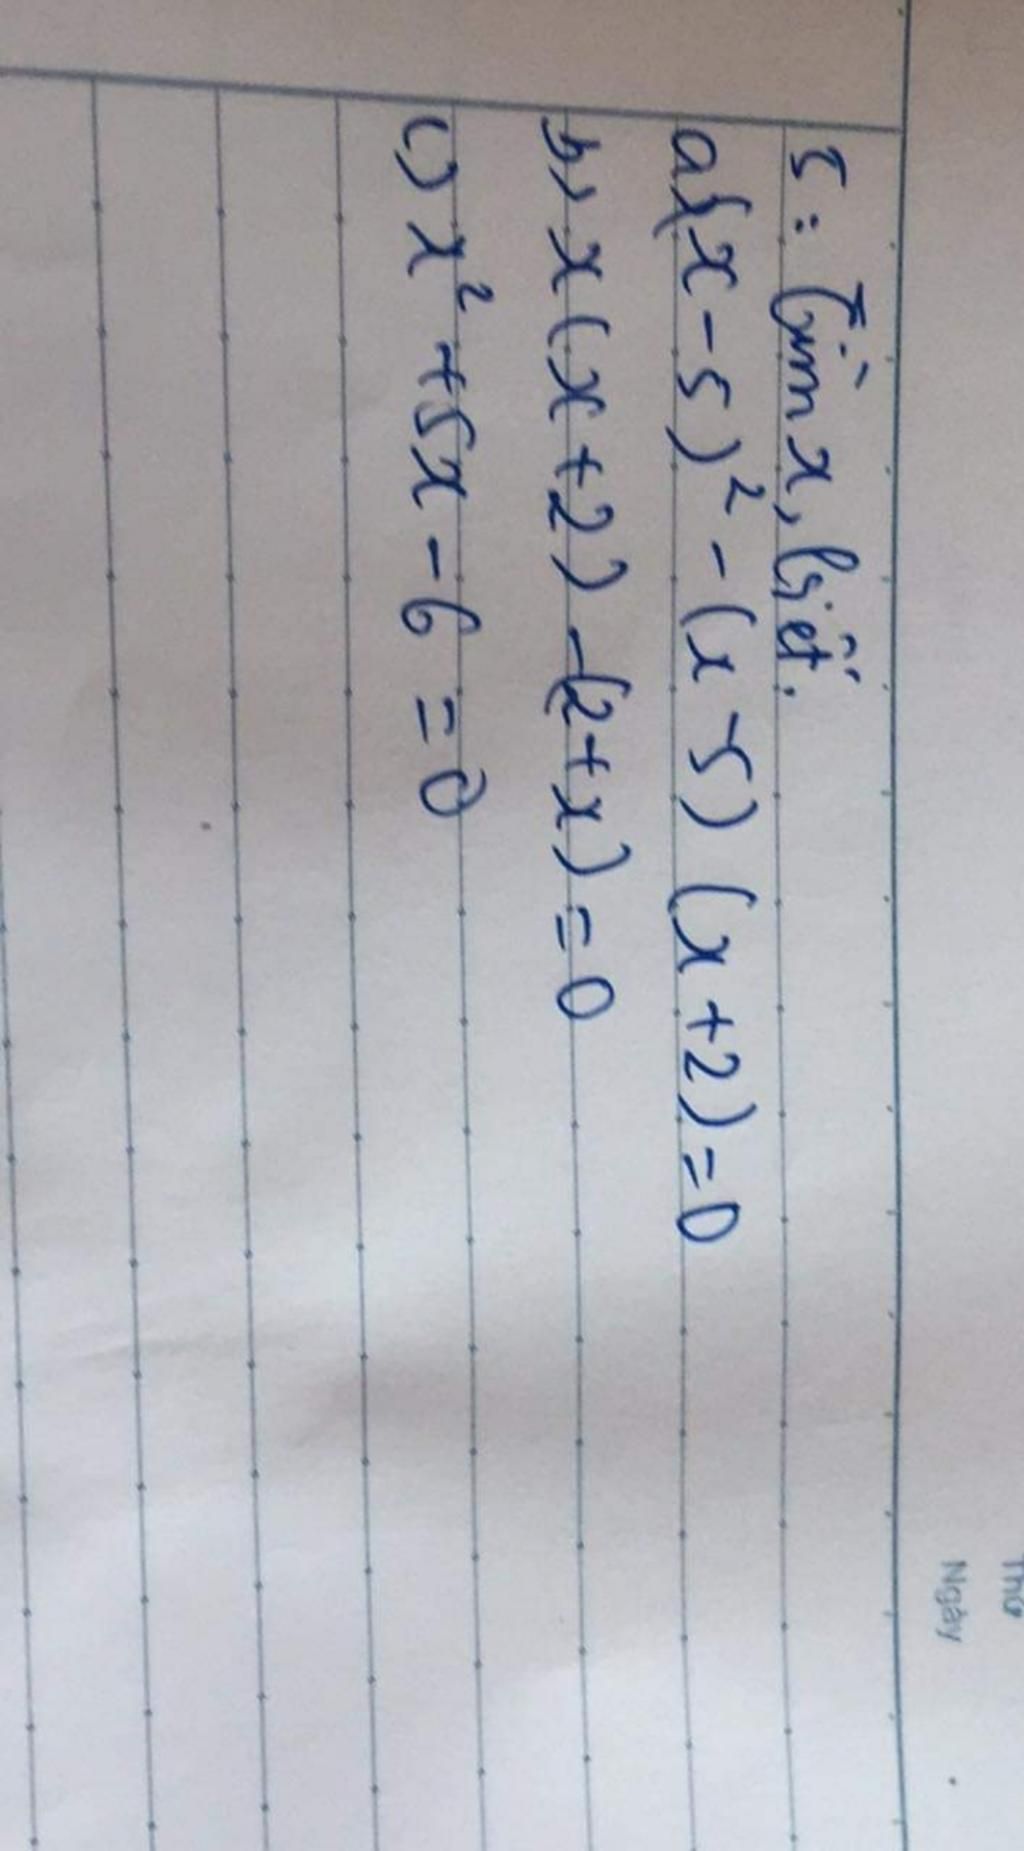 Thứ
Ngày
5: Tìm x, biết.
a) (x-5)² - (x-5) (x+2) = 0
b, x (x+2) - (2+x) = 0
c) x² + 5x - 6 = 0